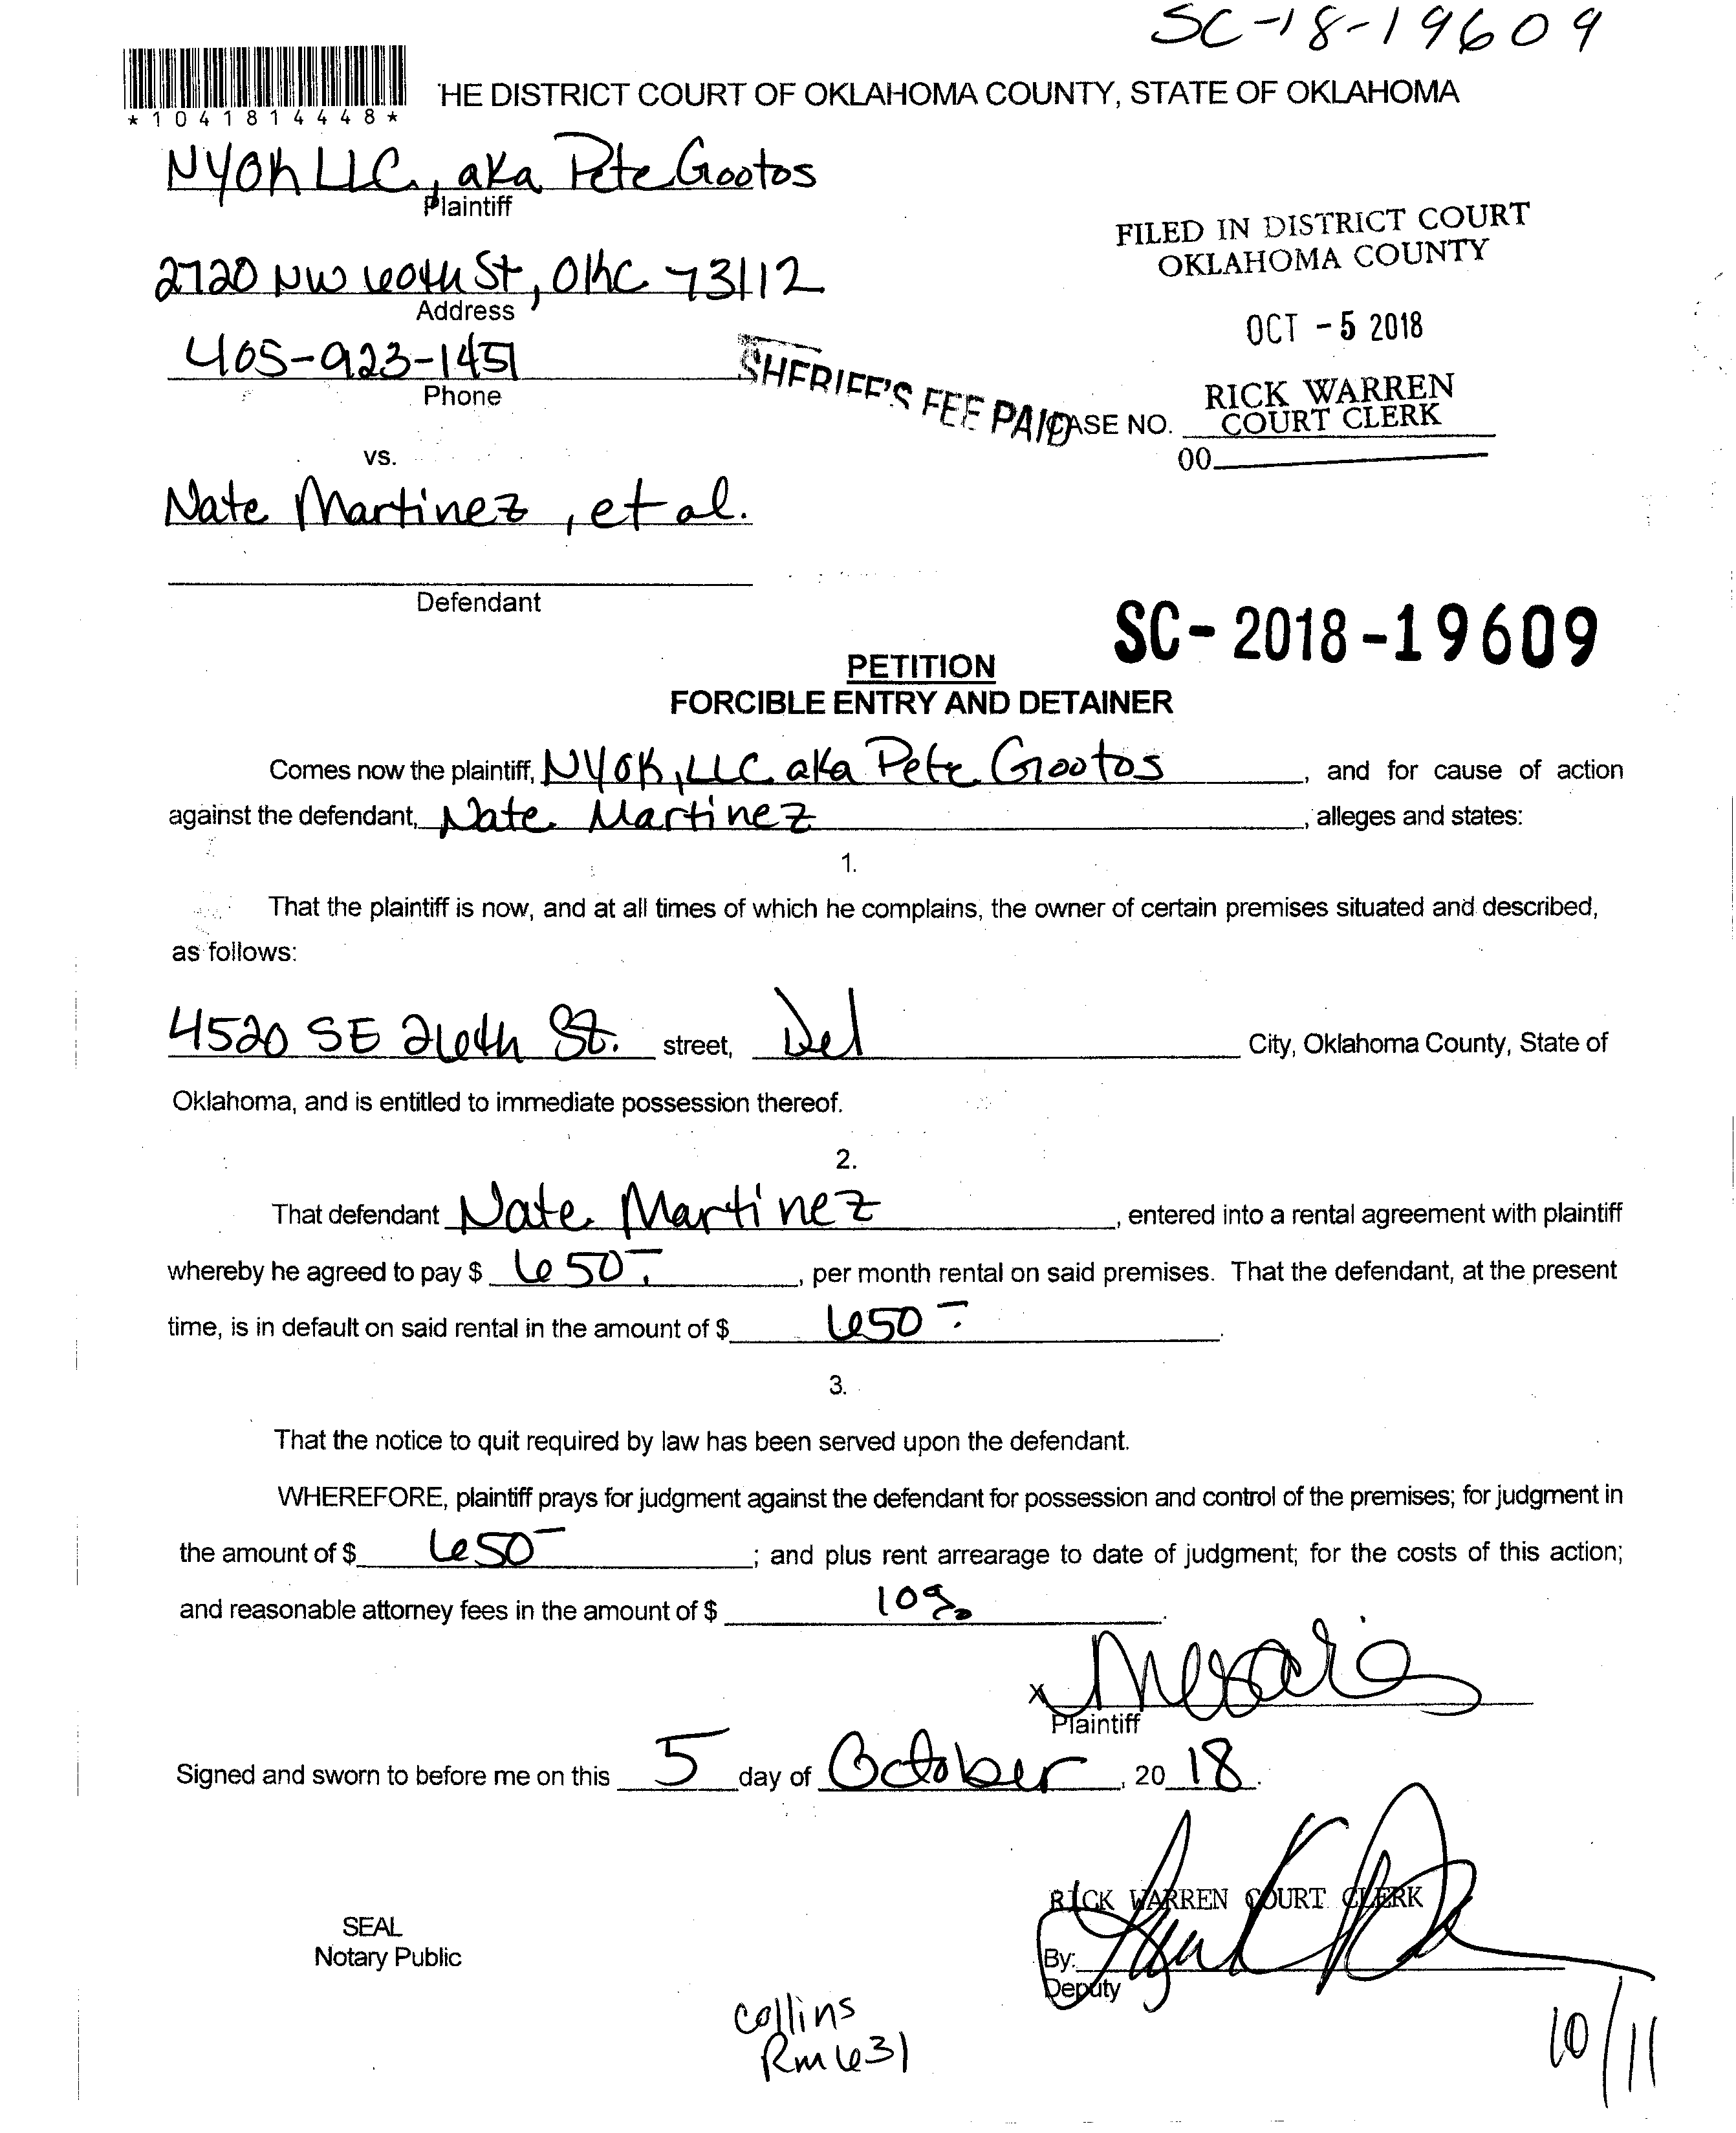 SC-18-19609
*1041814448*
HE DISTRICT COURT OF OKLAHOMA COUNTY, STATE OF OKLAHOMA
NYOK LLC, aka Pete Gootos
Plaintiff
FILED IN DISTRICT COURT
OKLAHOMA COUNTY
2720 NW 60th St, OKC 73112
Address
OCT - 5 2018
405-923-1451
Phone
SHERIFF'S FEE PAID
RICK WARREN
COURT CLERK
CASE NO.
00
vs.
Nate Martinez, et al.
Defendant
SC- 2018-19609
PETITION
FORCIBLE ENTRY AND DETAINER
Comes now the plaintiff, NYOK, LLC aka Pete Gootos, and for cause of action
against the defendant, Nate Martinez, alleges and states:
1.
That the plaintiff is now, and at all times of which he complains, the owner of certain premises situated and described,
as follows:
4520 SE 26th St. street, Del City, Oklahoma County, State of
Oklahoma, and is entitled to immediate possession thereof.
2.
That defendant Nate Martinez, entered into a rental agreement with plaintiff
whereby he agreed to pay $ 650-, per month rental on said premises. That the defendant, at the present
time, is in default on said rental in the amount of $ 650-.
3.
That the notice to quit required by law has been served upon the defendant.
WHEREFORE, plaintiff prays for judgment against the defendant for possession and control of the premises; for judgment in
the amount of $ 650-; and plus rent arrearage to date of judgment; for the costs of this action;
and reasonable attorney fees in the amount of $ 10%.
X
Plaintiff
Signed and sworn to before me on this 5 day of October, 20 18.
RICK WARREN COURT CLERK
SEAL
Notary Public
By:
Deputy
Collins
Rm 631
10/11